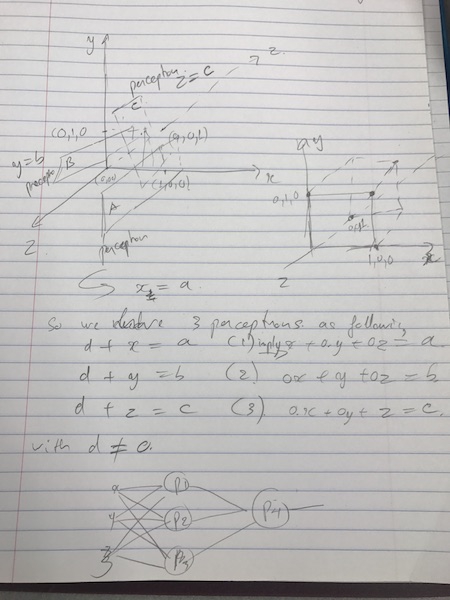 y
z
perceptron
z = c
C
(0,1,0
(0,0,1)
y = b
B
(0,0,0)
(1,0,0)
x
A
z
perceptron
x = a
y
0,1,0
0,0,1
1,0,0
x
z
So we 3 perceptrons as following
d + x = a (1) imply x + 0.y + 0z = a
d + y = b (2) 0x + y + 0z = b
d + z = c (3) 0.x + 0y + z = c.
with d ≠ 0.
x
P1
y
P2
P4
z
P3